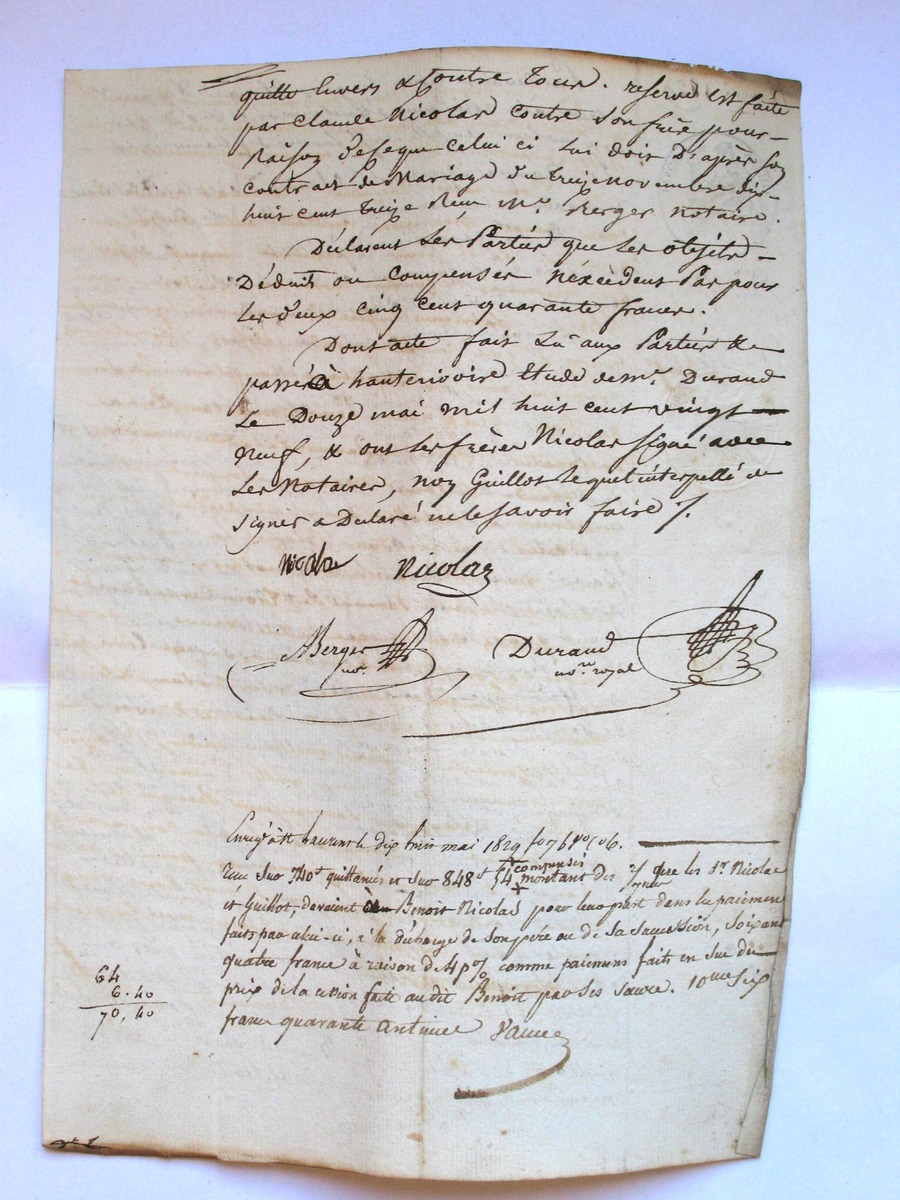 quitte Envers & Contre Tous. reserve est faite
par Claude Nicolas contre son frère pour
Raison de ce que celui ci lui doit D'après son
contract de Mariage du treize Novembre dix-
huit cent treize Reçu Mr. Berger Notaire.
Déclarent Les Parties que Les objets
Déduits ou compensés N'éxcèdent Pas pour
Les deux cinq cent quarante francs.
Dont acte fait Lu aux Parties &
passé à hauterivoire Etude de Mr. Durand
Le Douze mai mil huit cent vingt
neuf, & ont Les frères Nicolas signé avec
Les Notaires, non Guillot Lequel interpellé de
signer a Déclaré ne le savoir faire /.
Nicolas Nicolas
Berger Durand
nore. nore. royal
Enregé à St Laurent le dix huit mai 1829 fo 76 Vo c 6.
Reçu sur 740f quittancés et sur 848f 54 compensés montant des que les Sr. Nicolas
et Guillot, devaient à Benoit Nicolas pour leur part dans les paiemens
faits par celui-ci, à la décharge de son père ou de sa succession, soixante
quatre francs à raison de 4 p% comme paiemens faits en sus du
prix de la cession faite audit Benoit par ses sœurs. 10me six
francs quarante centimes
64
6.40
70,40